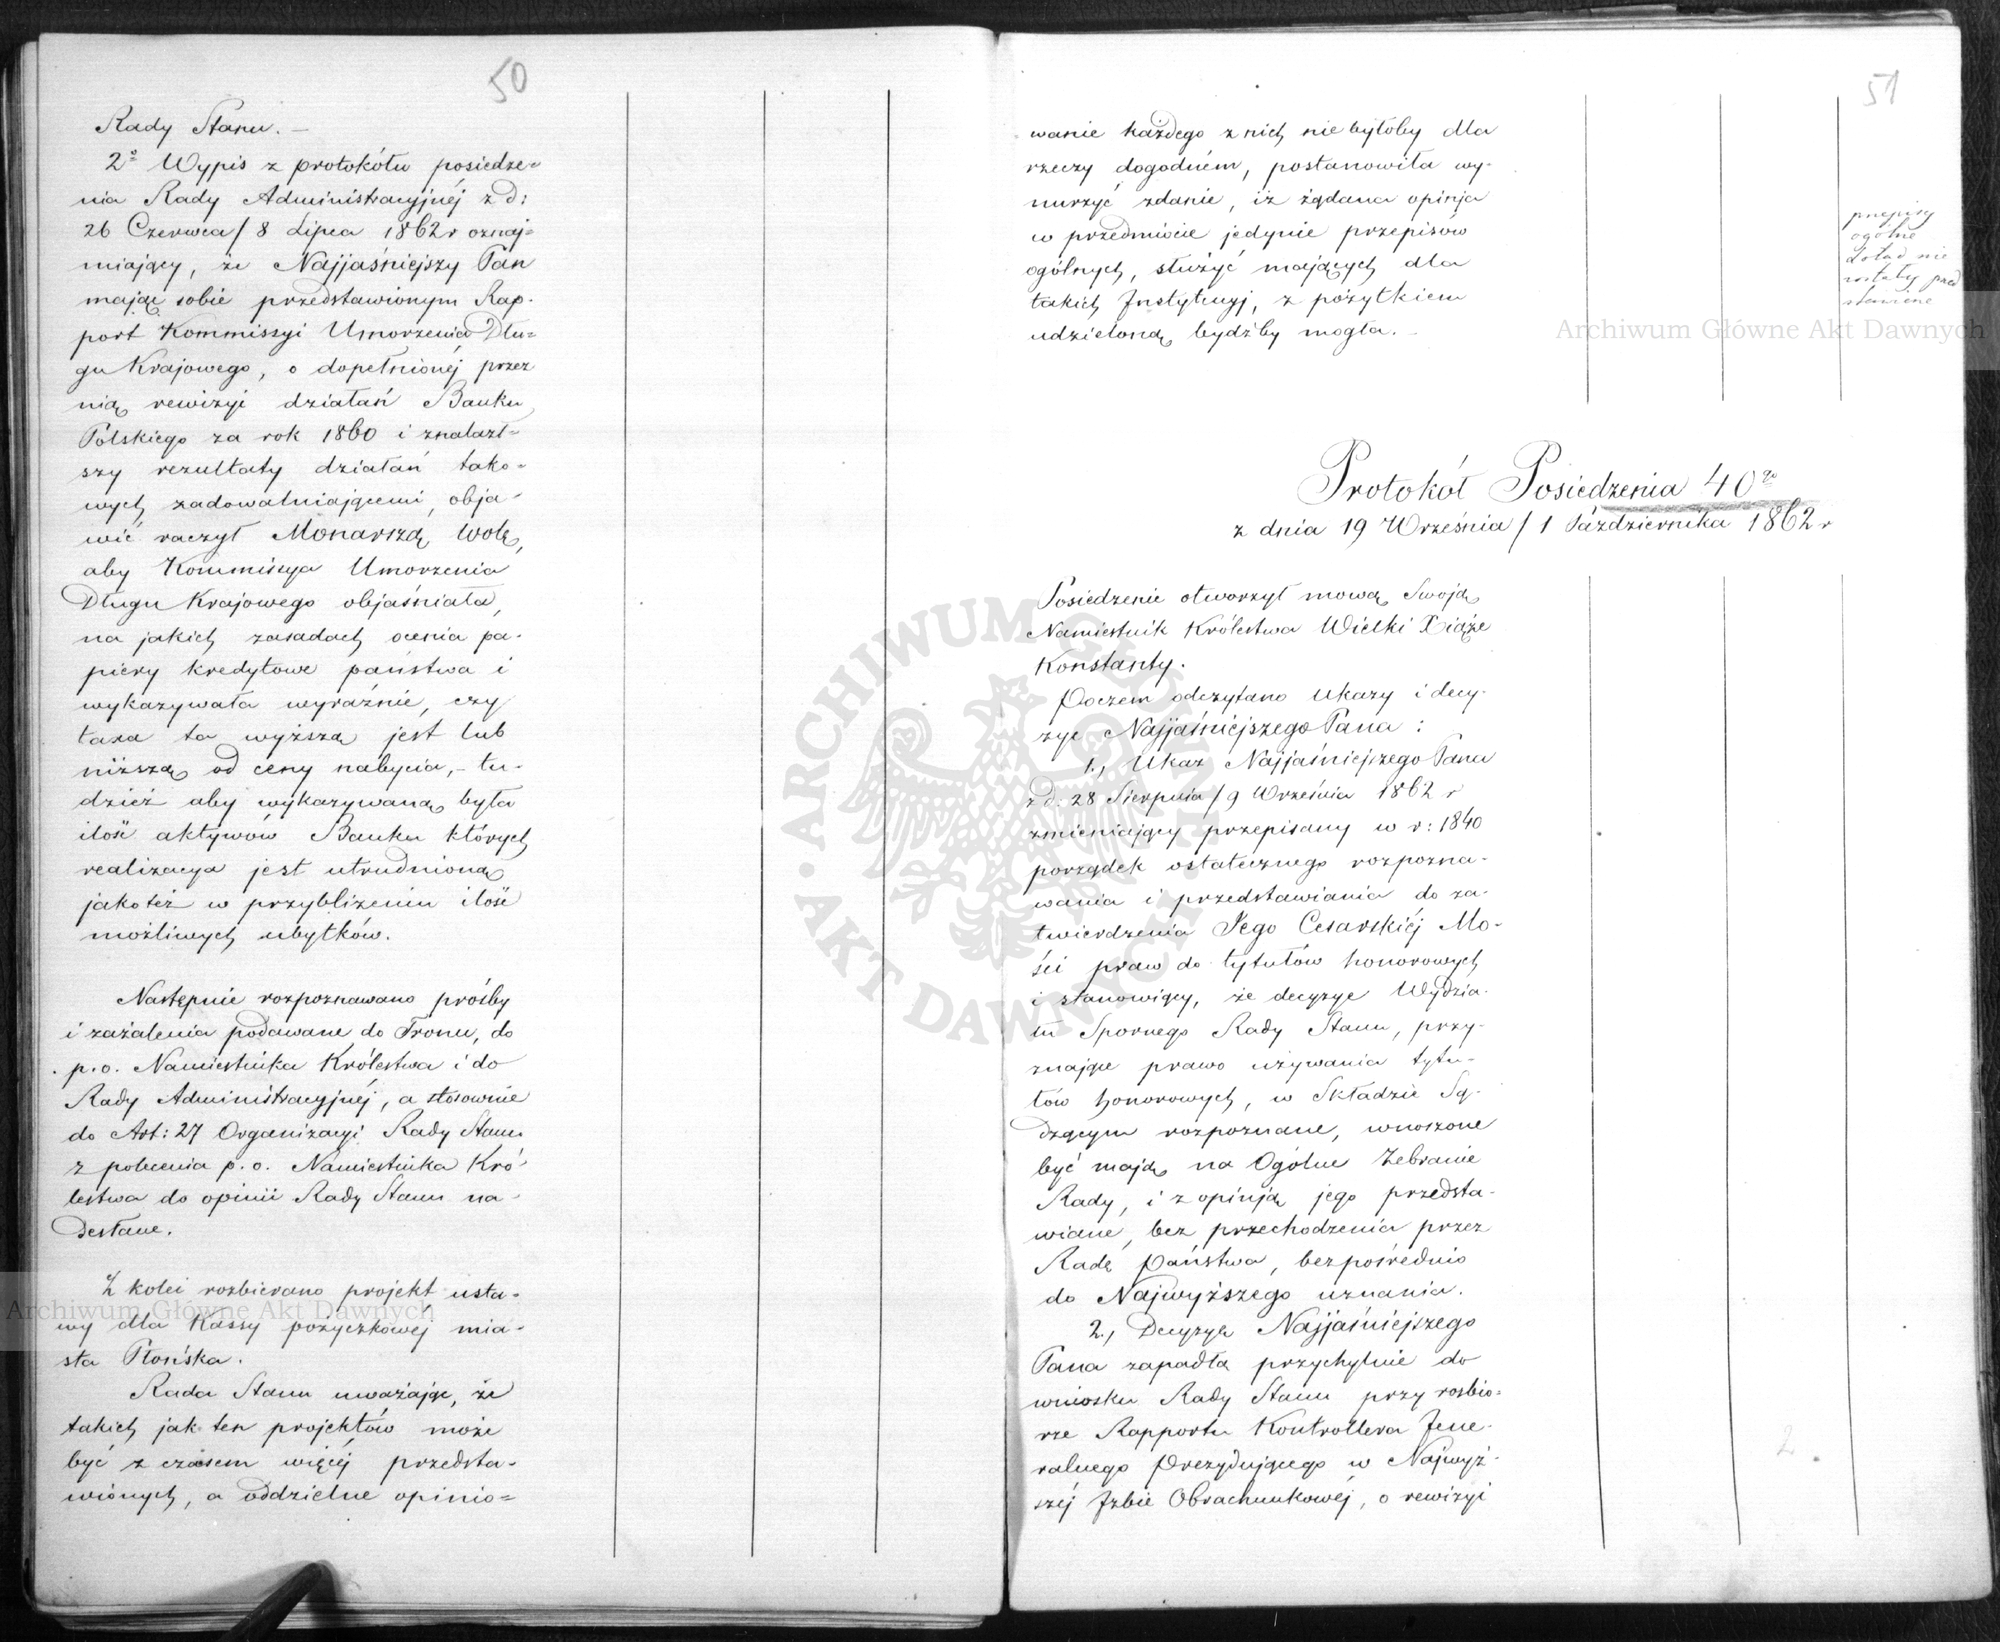 50
Rady Stanu. –
2º Wypis z protokółu posiedze=
nia Rady Administracyjnéj z d:
26 Czerwca / 8 Lipca 1862 r oznaj=
miający, że Najjaśniejszy Pan
mając sobie przedstawionym Rap-
port Kommissyi Umorzenia Dłu=
gu Krajowego, o dopełnionéj przez
nią rewizyi działań Banku
Polskiego za rok 1860 i znalazł=
szy rezultaty działań tako=
wych zadowalniającemi, obja-
wić raczył Monarszą wolę,
aby Kommissya Umorzenia
Długu Krajowego objaśniała,
na jakich zasadach ocenia pa-
piery kredytowe państwa i
wykazywała wyraźnie, czy
taxa ta wyższą jest lub
niższą od ceny nabycia, – tu-
dzież aby wykazywaną była
ilość aktywów Banku których
realizacya jest utrudnioną
jakotéż w przybliżeniu ilość
możliwych ubytków.
Następnie rozpoznawano prośby
i zażalenia podawane do Tronu, do
p. o. Namiestnika Królestwa i do
Rady Administracyjnéj, a stosownie
do Art: 27 Organizacyi Rady Stanu
z polecenia p. o. Namiestnika Kró-
lestwa do opinii Rady Stanu na-
desłane.
Z kolei rozbierano projekt usta-
wy dla Kassy pożyczkowéj mia-
sta Płońska.
Rada Stanu uważając, że
takich jak ten projektów może
być z czasem więcéj przedsta-
wionych, a oddzielne opinio=
51
wanie każdego z nich nie byłoby dla
rzeczy dogodném, postanowiła wy-
nurzyć zdanie, iż żądana opinja
w przedmiocie jedynie przepisów
ogólnych, służyć mających dla
takich Instytucyj, z pożytkiem
udzieloną bydźby mogła. –
przepisy
ogólne
dotąd nie
zostały przed
stawione
Protokół Posiedzenia 40go
z dnia 19 Września / 1 Października 1862 r
Posiedzenie otworzył mową Swoją
Namiestnik Królestwa Wielki Xiąże
Konstanty.
Poczem odczytano Ukazy i decy-
zye Najjaśniejszego Pana:
1., Ukaz Najjaśniejszego Pana
z d. 28 Sierpnia / 9 Września 1862 r
zmieniający przepisany w r: 1840
porządek ostatecznego rozpozna-
wania i przedstawiania do za-
twierdzenia Jego Cesarskiéj Mo-
ści praw do tytułów honorowych
i stanowiący, że decyzye Wydzia-
łu Spornego Rady Stanu, przy-
znające prawo używania tytu-
łów honorowych, w Składzie Są-
dzącym rozpoznane, wnoszone
być mają na Ogólne Zebranie
Rady, i z opinją jego przedsta-
wiane, bez przechodzenia przez
Radę Państwa, bezpośrednio
do Najwyższego uznania.
2., Decyzyą Najjaśniejszego
Pana zapadłą przychylnie do
wniosku Rady Stanu przy rozbio=
rze Rapportu Kontrollera Jene-
ralnego Prezydującego w Najwyż-
széj Izbie Obrachunkowéj, o rewizyi
2
Archiwum Główne Akt Dawnych
Archiwum Główne Akt Dawnych
ARCHIWUM GŁÓWNE AKT DAWNYCH